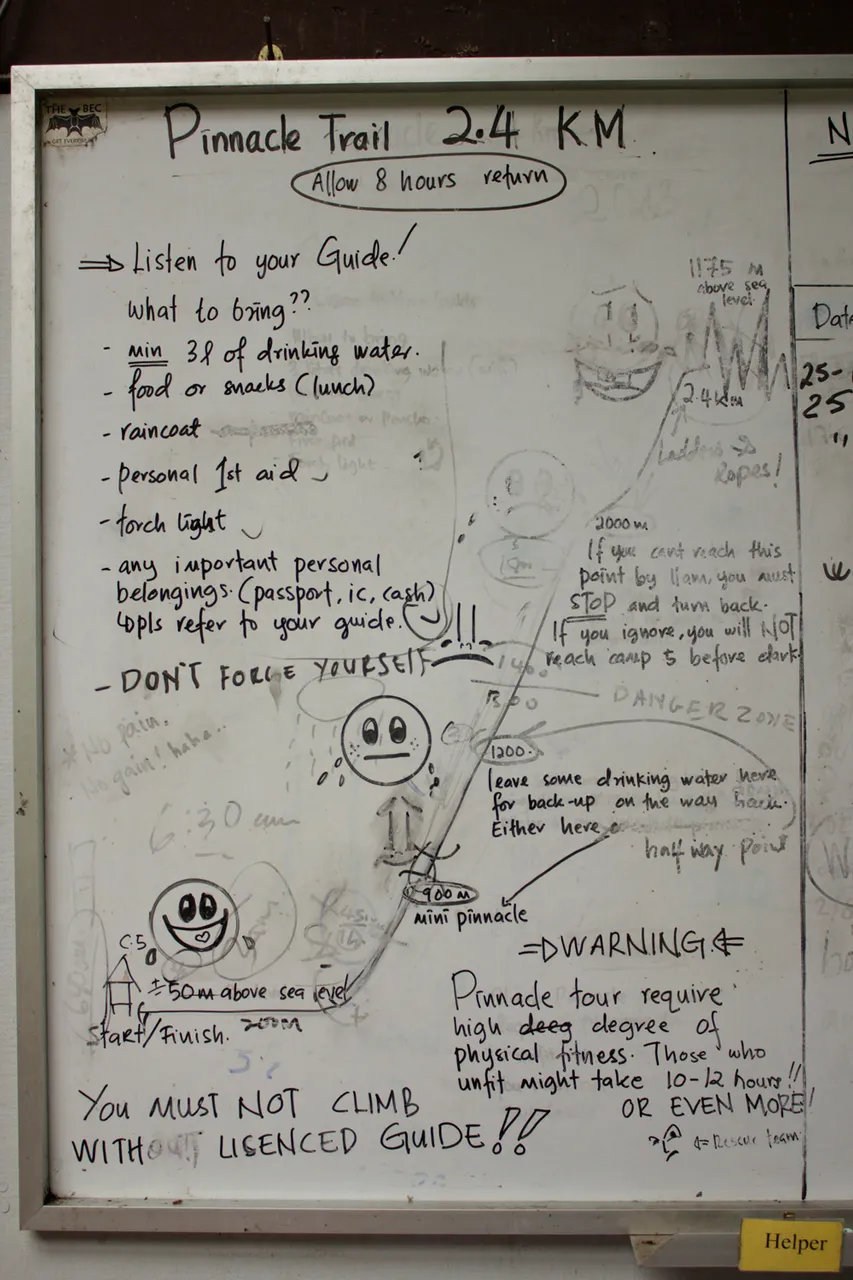 THE BEC
Pinnacle Trail 2.4 KM
Allow 8 hours return
Listen to your Guide!
What to bring??
- min 3l of drinking water.
- food or snacks (lunch)
- raincoat
- personal 1st aid
- torch light
- any important personal
belongings. (passport, ic, cash)
pls refer to your guide.
- DON'T FORCE YOURSELF
No pain,
No gain! haha..
6:30 am
1175 M
above sea
level.
2.4 km
Ladders &
Ropes!
2000 m
If you cant reach this
point by 11am, you must
STOP and turn back.
If you ignore, you will NOT
reach camp 5 before dark
DANGER ZONE
1200
leave some drinking water here
for back-up on the way back.
Either here
half way point
900 M
mini pinnacle
C.5
± 50m above sea level
Start/Finish. 200m
WARNING.
Pinnacle tour require
high deeg degree of
physical fitness. Those who
unfit might take 10-12 hours!!
OR EVEN MORE!
Rescue team
YOU MUST NOT CLIMB
WITHOUT LISENCED GUIDE!!
N
Date
25-
25
Helper